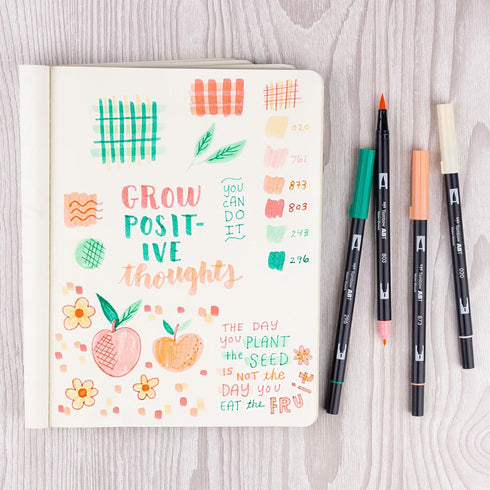 GROW
POSIT-
IVE
thoughts
YOU
CAN
DO
IT
020
761
873
803
243
296
THE DAY
YOU PLANT
the SEED
IS NOT the
DAY YOU
EAT the FRUIT
296
Tombow ABT
803
Tombow ABT
873
Tombow ABT
020